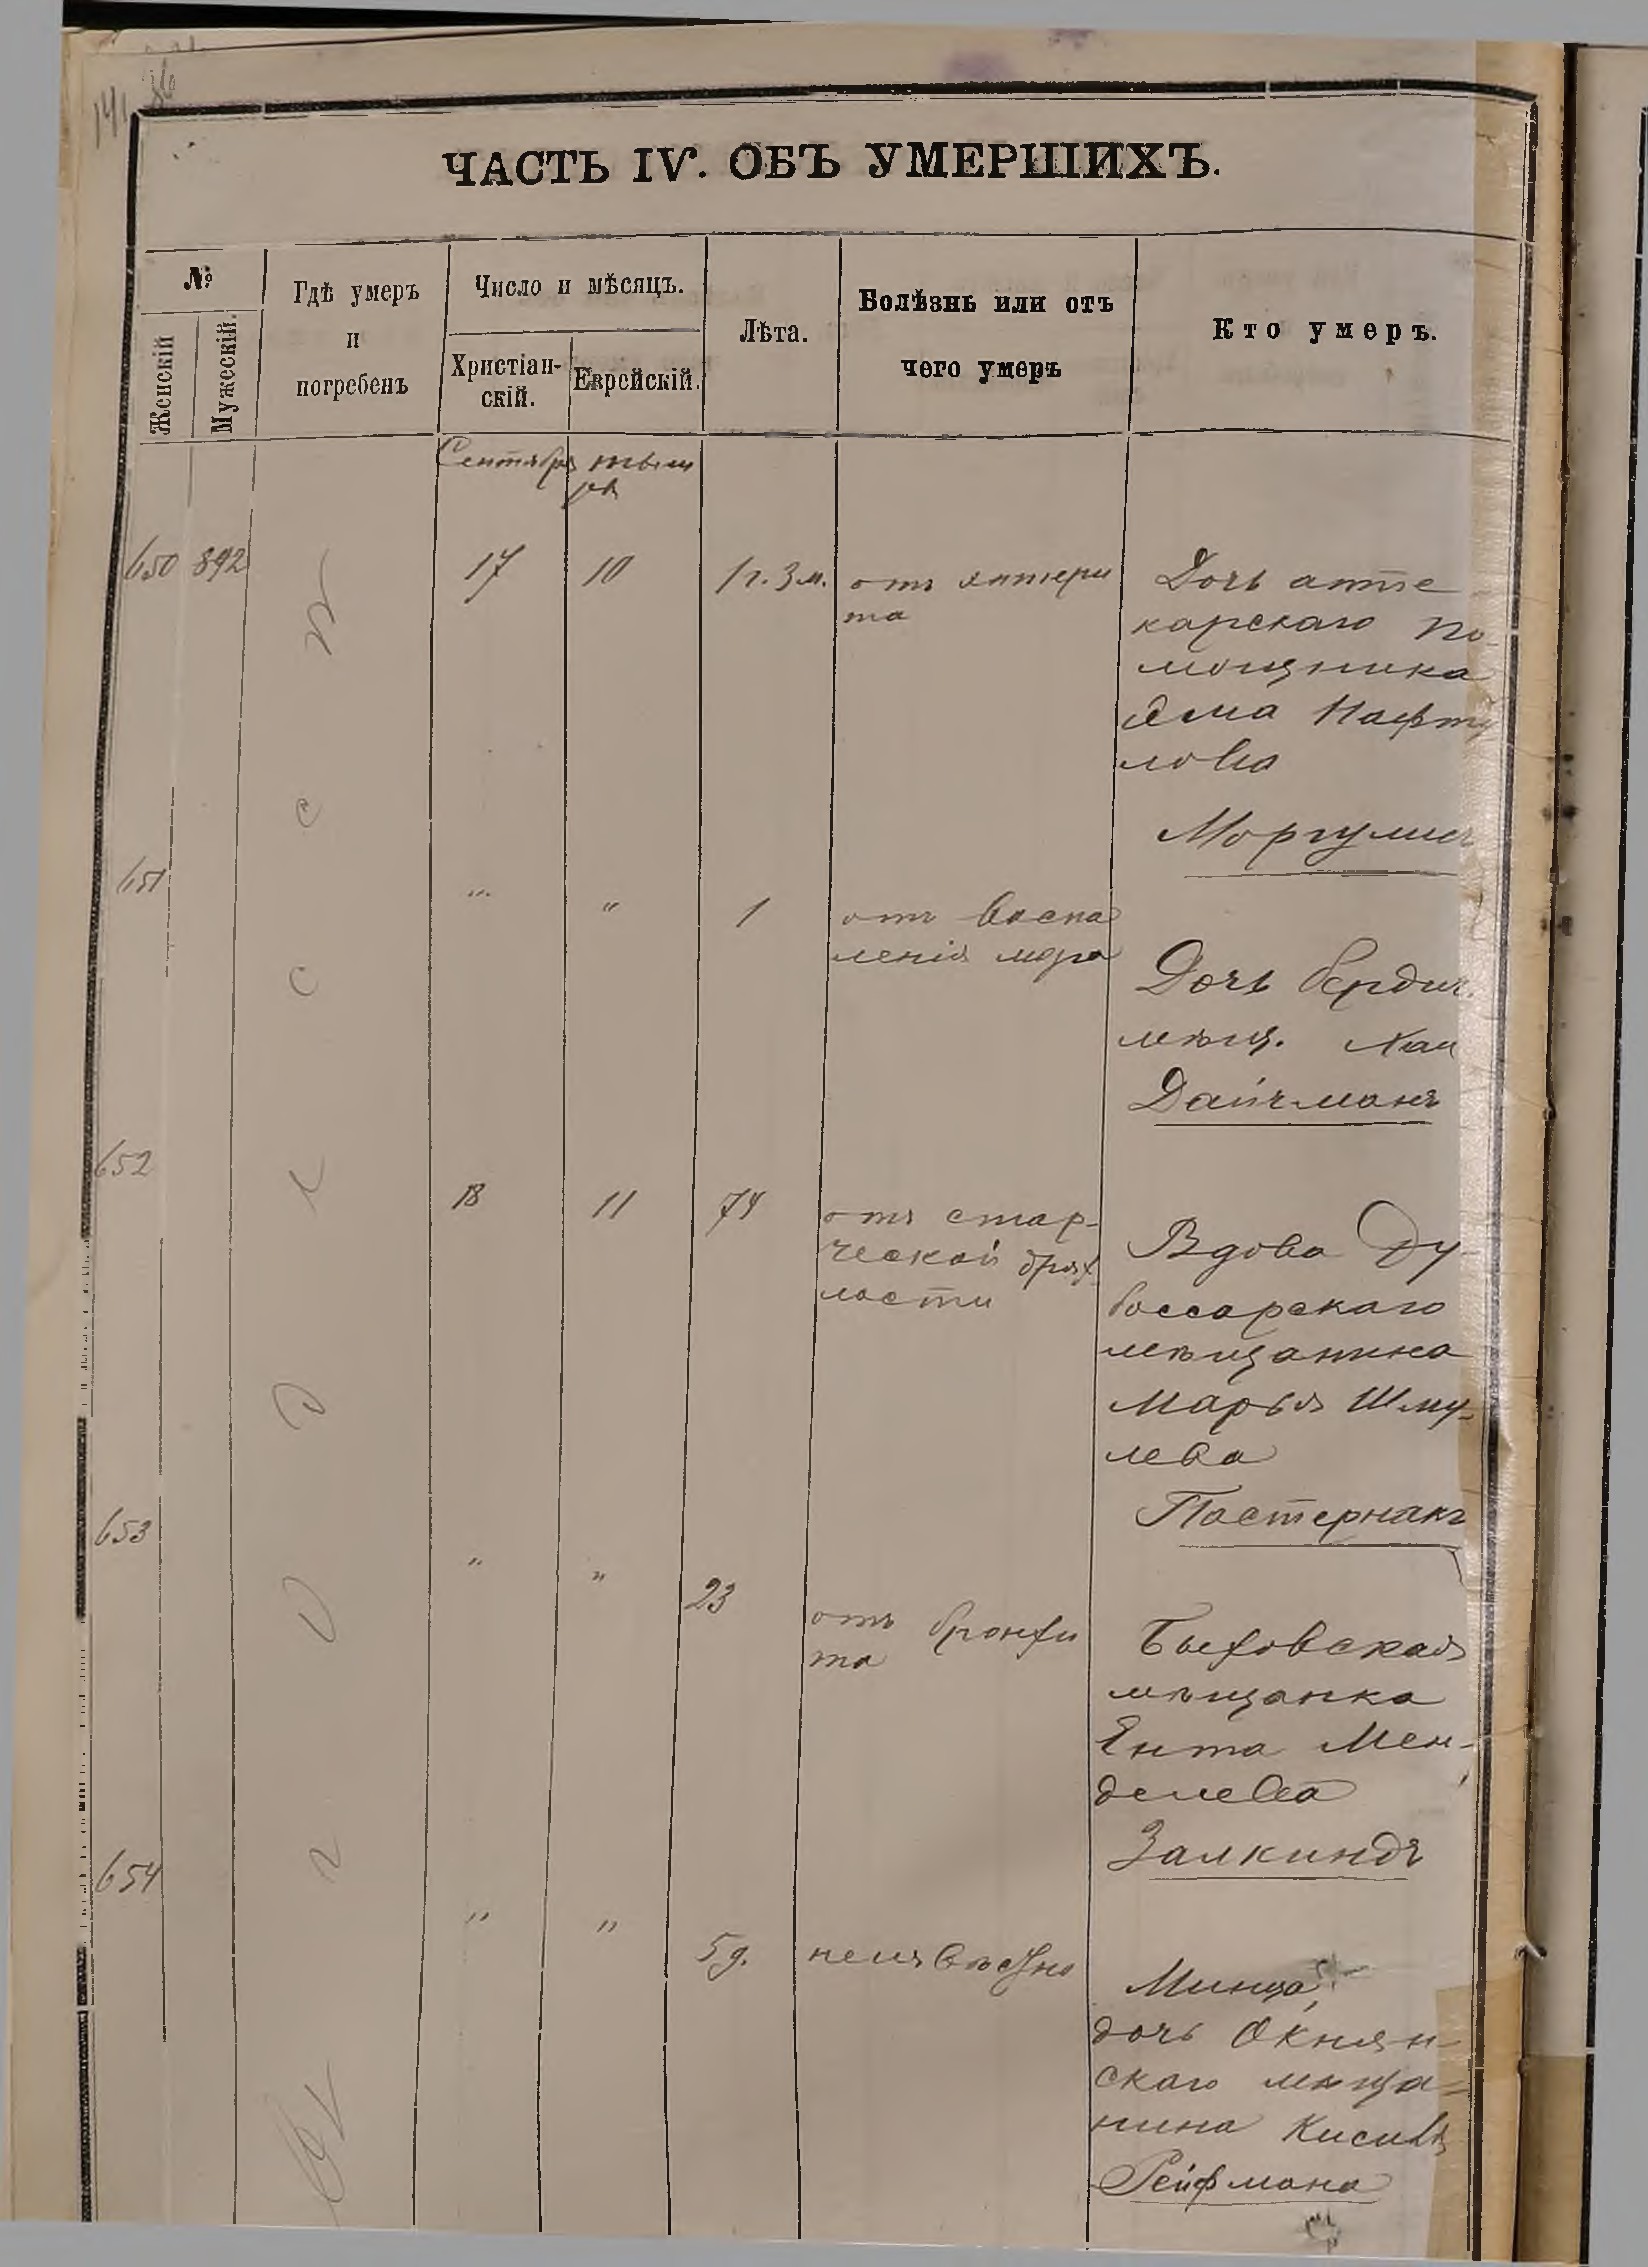 141
86
ЧАСТЬ IV. ОБЪ УМЕРШИХЪ.
№
Женскій
Мужескій.
Гдѣ умеръ
и
погребенъ
Число и мѣсяцъ.
Христіан-
скій.
Еврейскій.
Лѣта.
Болѣзнь или отъ
чего умеръ
Кто умеръ.
Сентября тыш
ре
650 892 17 10 1 г. 3 м.
отъ энтери
та
Дочь апте
карскаго по-
мощника
Эма Нафту
лова
Моргулисъ
651 " " 1
отъ воспа
ленія мозга
Дочь бердич.
мѣщ. Хаи
Дайчманъ
652 18 11 74
отъ стар-
ческой дрях-
лости
Вдова Ду-
боссарскаго
мѣщанина
Марья Шму-
лева
Пастернакъ
653 " " 23
отъ бронхи
та
Быховская
мѣщанка
Ента Мен-
делева
Залкиндъ
654 " " 5 д.
неизвѣстно
Минца,
дочь Окнян
скаго мѣща-
нина Кисиля
Рейфмана
въ г О д е с с ѣ